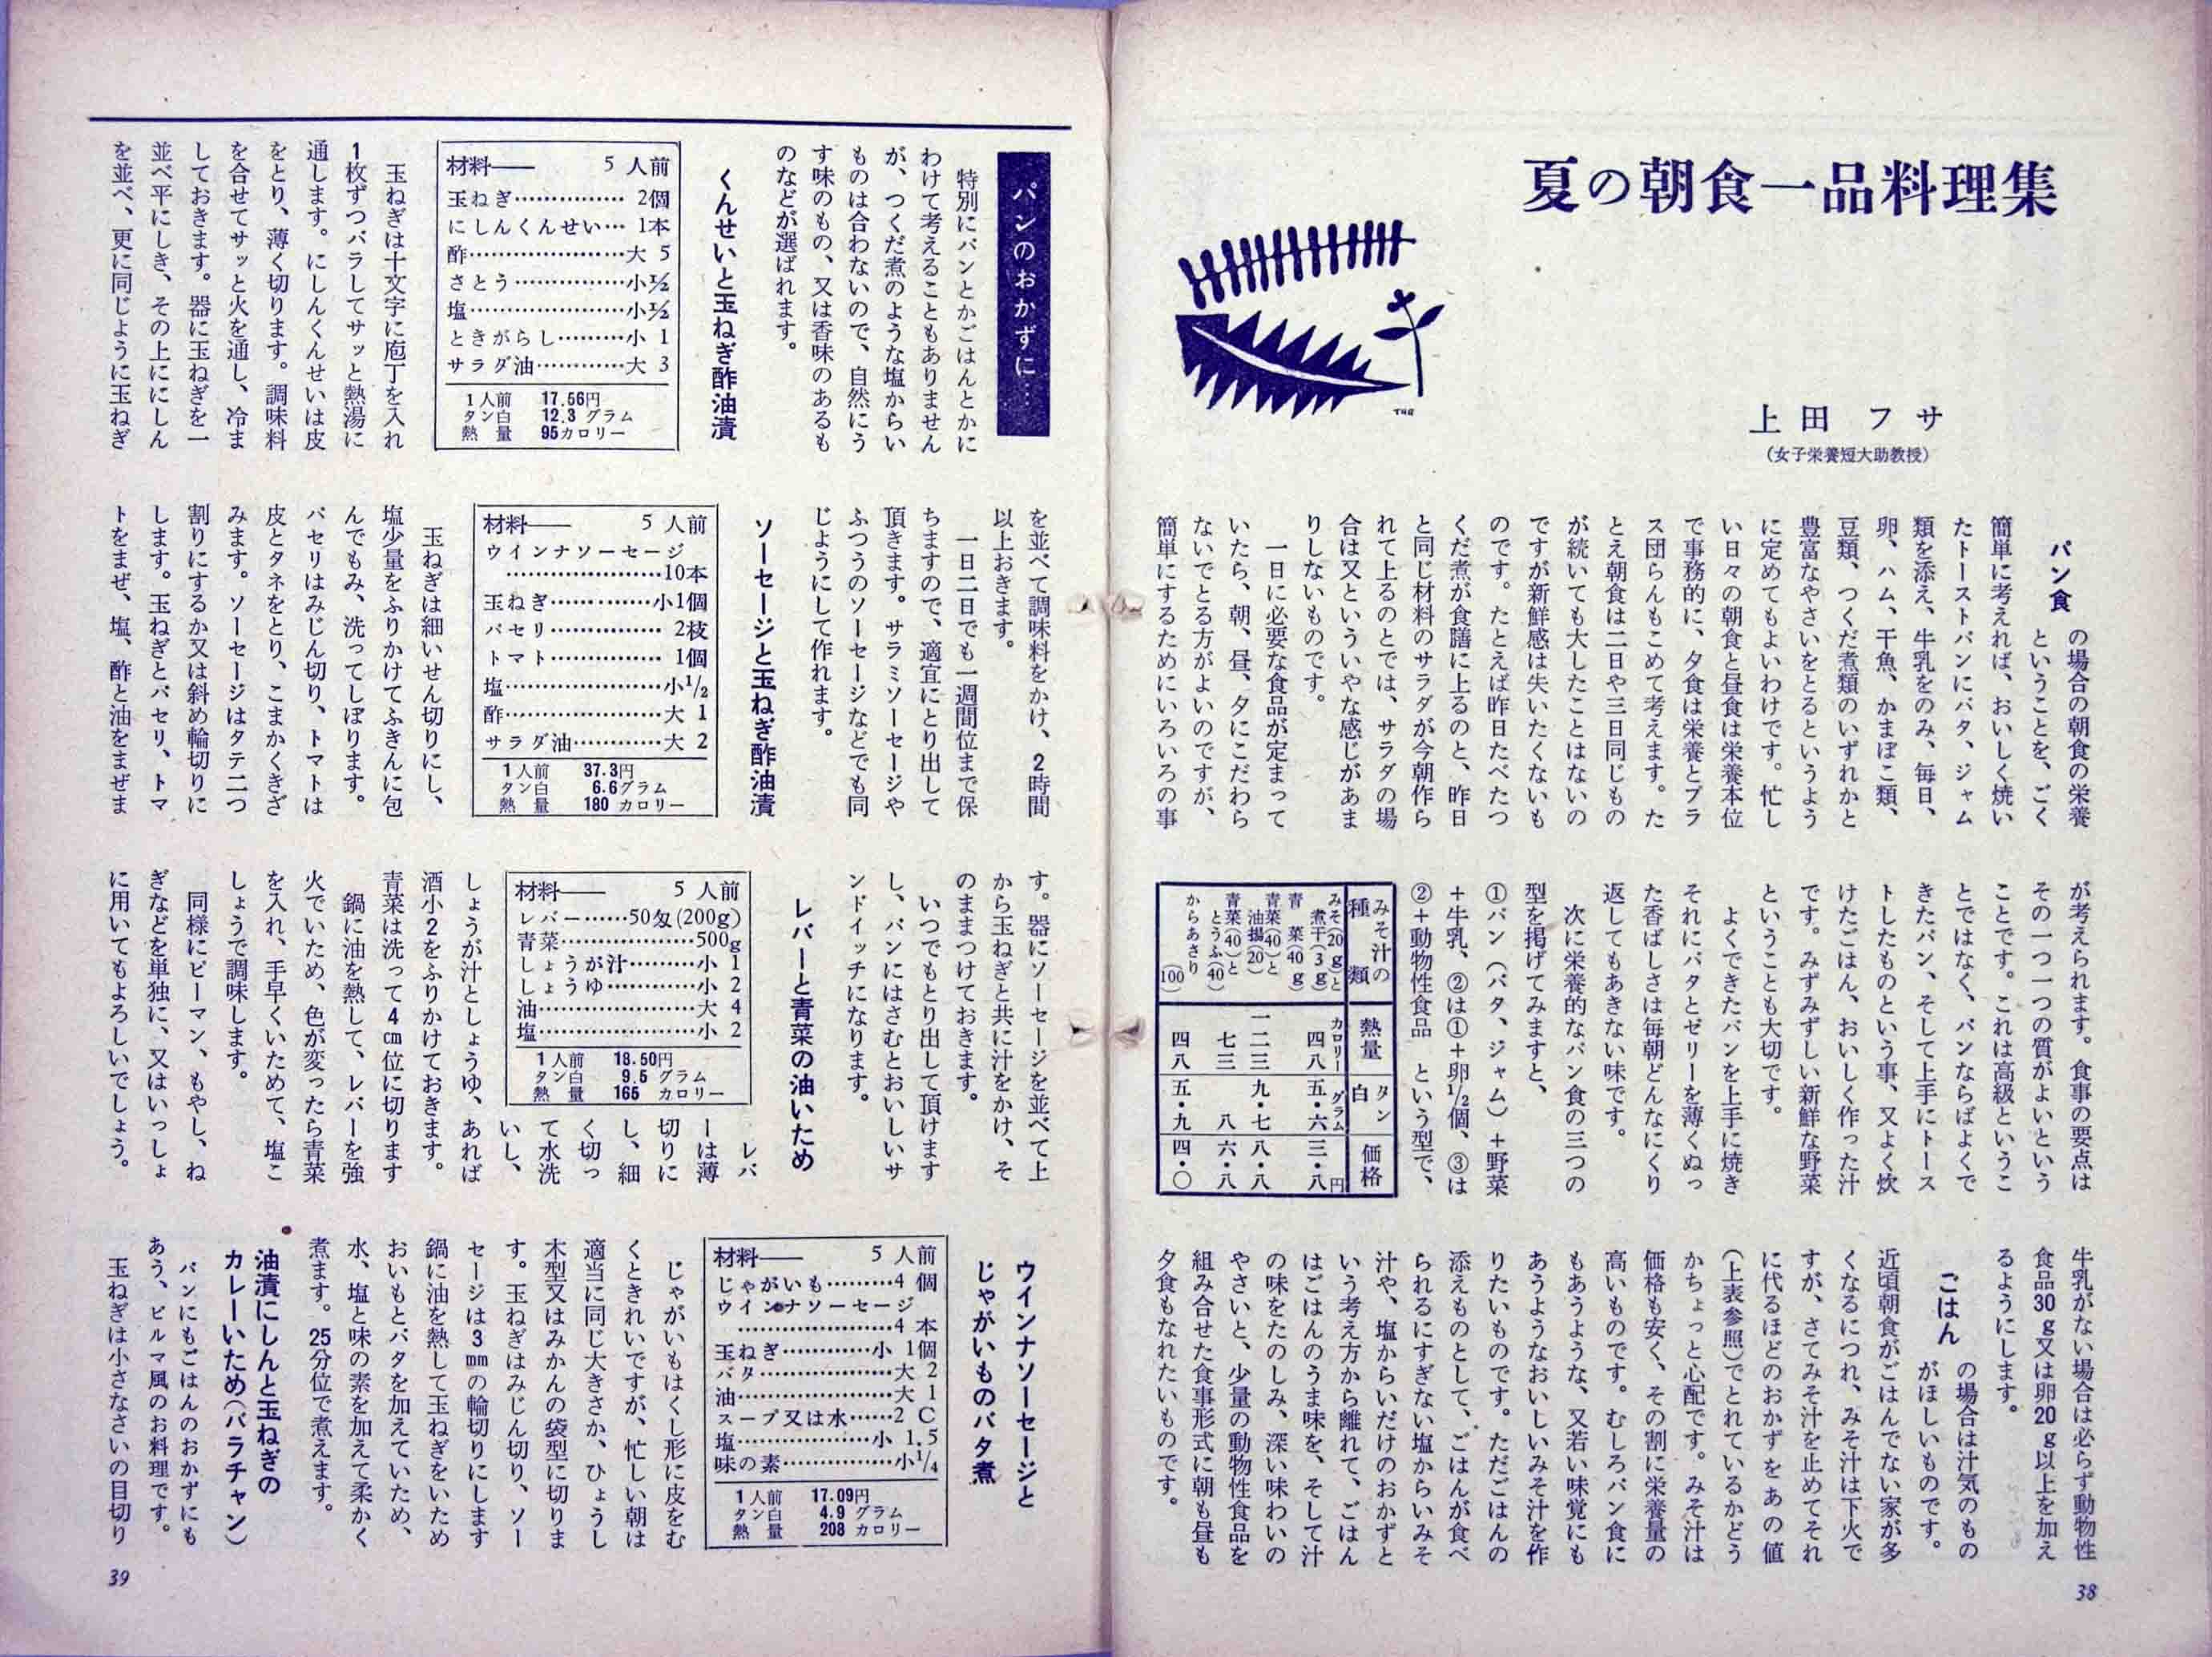 夏の朝食一品料理集
上田 フサ
(女子栄養短大助教授)
パン食
の場合の朝食の栄養
ということを、ごく
簡単に考えれば、おいしく焼い
たトーストパンにバタ、ジャム
類を添え、牛乳をのみ、毎日、
卵、ハム、干魚、かまぼこ類、
豆類、つくだ煮類のいずれかと
豊富なやさいをとるというよう
に定めてもよいわけです。忙し
い日々の朝食と昼食は栄養本位
で事務的に、夕食は栄養とプラ
ス団らんもこめて考えます。た
とえ朝食は二日や三日同じもの
が続いても大したことはないの
ですが新鮮感は失いたくないも
のです。たとえば昨日たべたつ
くだ煮が食膳に上るのと、昨日
と同じ材料のサラダが今朝作ら
れて上るのとでは、サラダの場
合は又といういやな感じがあま
りしないものです。
一日に必要な食品が定まって
いたら、朝、昼、夕にこだわら
ないでとる方がよいのですが、
簡単にするためにいろいろの事
が考えられます。食事の要点は
その一つ一つの質がよいという
ことです。これは高級というこ
とではなく、パンならばよくで
きたパン、そして上手にトース
トしたものという事、又よく炊
けたごはん、おいしく作った汁
です。みずみずしい新鮮な野菜
ということも大切です。
よくできたパンを上手に焼き
それにバタとゼリーを薄くぬっ
た香ばしさは毎朝どんなにくり
返してもあきない味です。
次に栄養的なパン食の三つの
型を掲げてみますと、
①パン（バタ、ジャム）＋野菜
＋牛乳、②は①＋卵1/2個、③は
②＋動物性食品 という型で、
みそ汁の種類 熱量 タン白 価格
みそ(20g)と煮干(3g) 青菜(40g) カロリー四八 グラム五・六 三・八円
青菜(40)と油揚(20) 一二三 九・七 八・八
青菜(40)ととうふ(40) 七三 八 六・八
からあさり(100) 四八 五・九 四・〇
牛乳がない場合は必らず動物性
食品30g又は卵20g以上を加え
るようにします。
ごはん
の場合は汁気のもの
がほしいものです。
近頃朝食がごはんでない家が多
くなるにつれ、みそ汁は下火で
すが、さてみそ汁を止めてそれ
に代るほどのおかずをあの値
（上表参照）でとれているかどう
かちょっと心配です。みそ汁は
価格も安く、その割に栄養量の
高いものです。むしろパン食に
もあうような、又若い味覚にも
あうようなおいしいみそ汁を作
りたいものです。ただごはんの
添えものとして、ごはんが食べ
られるにすぎない塩からいみそ
汁や、塩からいだけのおかずと
いう考え方から離れて、ごはん
はごはんのうま味を、そして汁
の味をたのしみ、深い味わいの
やさいと、少量の動物性食品を
組み合せた食事形式に朝も昼も
夕食もなれたいものです。
38
パンのおかずに…
特別にパンとかごはんとかに
わけて考えることもありません
が、つくだ煮のような塩からい
ものは合わないので、自然にう
す味のもの、又は香味のあるも
のなどが選ばれます。
くんせいと玉ねぎ酢油漬
材料―― 5人前
玉ねぎ……………2個
にしんくんせい…1本
酢…………………大5
さとう……………小½
塩…………………小½
ときがらし………小1
サラダ油…………大3
1人前 17.56円
タン白 12.3グラム
熱量 95カロリー
玉ねぎは十文字に庖丁を入れ
1枚ずつバラしてサッと熱湯に
通します。にしんくんせいは皮
をとり、薄く切ります。調味料
を合せてサッと火を通し、冷ま
しておきます。器に玉ねぎを一
並べ平にしき、その上ににしん
を並べ、更に同じように玉ねぎ
を並べて調味料をかけ、2時間
以上おきます。
一日二日でも一週間位まで保
ちますので、適宜にとり出して
頂きます。サラミソーセージや
ふつうのソーセージなどでも同
じようにして作れます。
ソーセージと玉ねぎ酢油漬
材料―― 5人前
ウインナソーセージ
…………………10本
玉ねぎ…………小1個
パセリ……………2枝
トマト……………1個
塩………………小1/2
酢…………………大1
サラダ油…………大2
1人前 37.3円
タン白 6.6グラム
熱量 180カロリー
玉ねぎは細いせん切りにし、
塩少量をふりかけてふきんに包
んでもみ、洗ってしぼります。
パセリはみじん切り、トマトは
皮とタネをとり、こまかくきざ
みます。ソーセージはタテ二つ
割りにするか又は斜め輪切りに
します。玉ねぎとパセリ、トマ
トをまぜ、塩、酢と油をまぜま
す。器にソーセージを並べて上
から玉ねぎと共に汁をかけ、そ
のままつけておきます。
いつでもとり出して頂けます
し、パンにはさむとおいしいサ
ンドイッチになります。
レバーと青菜の油いため
材料―― 5人前
レバー……50匁(200g)
青菜………………500g
しょうが汁………小1
しょうゆ…………小2
油…………………大4
塩…………………小2
1人前 18.50円
タン白 9.5グラム
熱量 165カロリー
レバ
ーは薄
切りに
し、細
く切っ
て水洗
いし、
しょうが汁としょうゆ、あれば
酒小2をふりかけておきます。
青菜は洗って4㎝位に切ります
鍋に油を熱して、レバーを強
火でいため、色が変ったら青菜
を入れ、手早くいためて、塩こ
しょうで調味します。
同様にピーマン、もやし、ね
ぎなどを単独に、又はいっしょ
に用いてもよろしいでしょう。
ウインナソーセージと
じゃがいものバタ煮
材料―― 5人前
じゃがいも………4個
ウインナソーセージ
…………………4本
玉ねぎ…………小1個
バタ………………大2
油…………………大1
スープ又は水……2C
塩………………小1.5
味の素…………小1/4
1人前 17.09円
タン白 4.9グラム
熱量 208カロリー
じゃがいもはくし形に皮をむ
くときれいですが、忙しい朝は
適当に同じ大きさか、ひょうし
木型又はみかんの袋型に切りま
す。玉ねぎはみじん切り、ソー
セージは3㎜の輪切りにします
鍋に油を熱して玉ねぎをいため
おいもとバタを加えていため、
水、塩と味の素を加えて柔かく
煮ます。25分位で煮えます。
油漬にしんと玉ねぎの
カレーいため（バラチャン）
パンにもごはんのおかずにも
あう、ビルマ風のお料理です。
玉ねぎは小さなさいの目切り
39